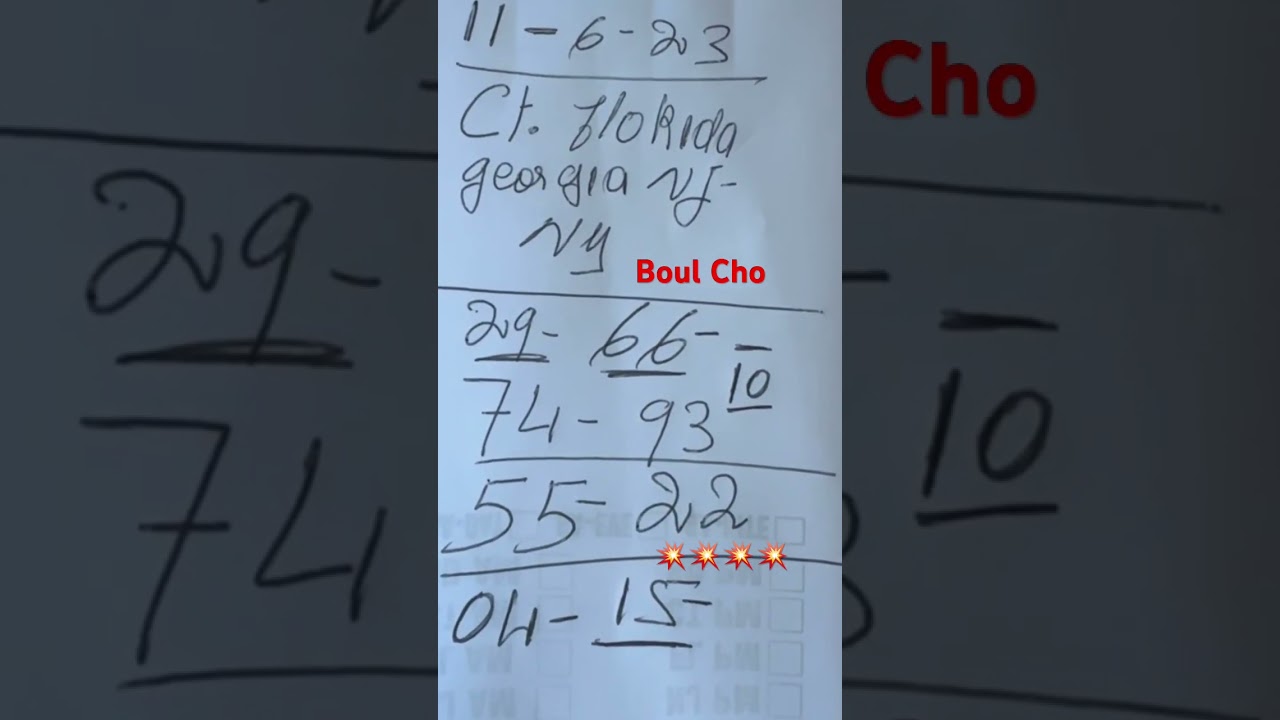 11-6-23
Ct. floRida
georgia NJ-
Ny
Boul Cho
29- 66-
10
74-93
55-22
💥💥💥💥
04-15-
Cho
29-
74
10